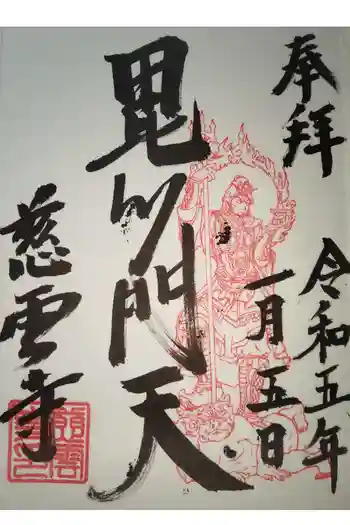 奉拝
令和五年
一月五日
毘沙門天
慈雲寺